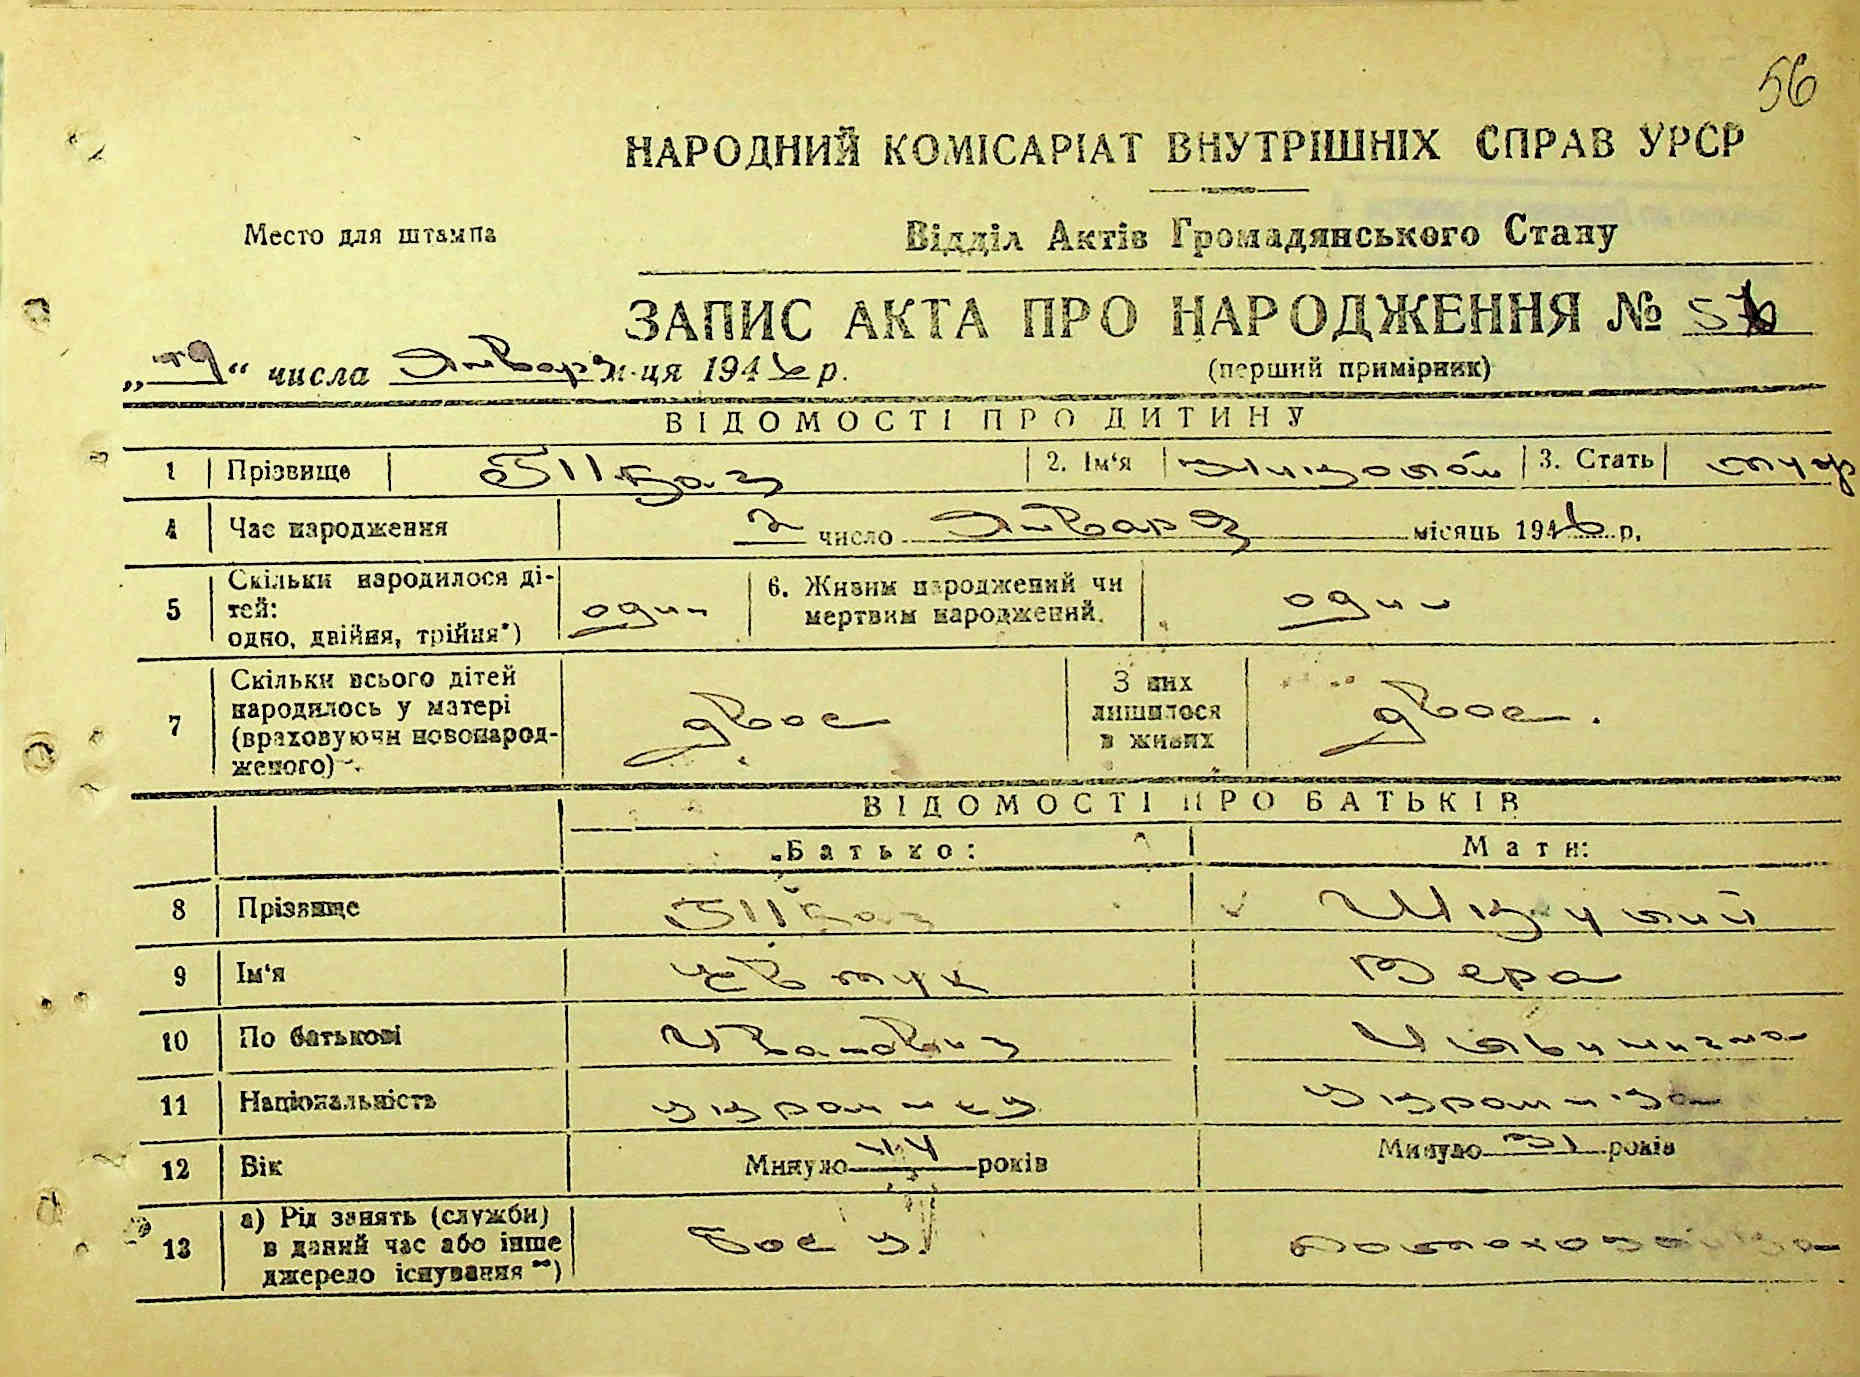 56
НАРОДНИЙ КОМІСАРІАТ ВНУТРІШНІХ СПРАВ УРСР
Место для штампа
Відділ Актів Громадянського Стану
ЗАПИС АКТА ПРО НАРОДЖЕННЯ № 56
„19“ числа Января м-ця 1946 р.
(перший примірник)
ВІДОМОСТІ ПРО ДИТИНУ
1 Прізвище 2. Ім‘я Николай 3. Стать муж
4 Час народження 2 число Января місяць 1946 р.
5 Скільки народилося дітей: одно, двійня, трійня*) один 6. Живим народжений чи мертвим народжений. один
7 Скільки всього дітей народилось у матері (враховуючи новонародженого) двое З них лишилося в живих двое.
ВІДОМОСТІ ПРО БАТЬКІВ
Батько: Мати:
8 Прізвище
9 Ім‘я Вера
10 По батькові Иванович
11 Національність украинец украинка
12 Вік Минуло 44 років Минуло 31 років
13 а) Рід занять (служби) в даний час або інше джерело існування **) домохозяйка